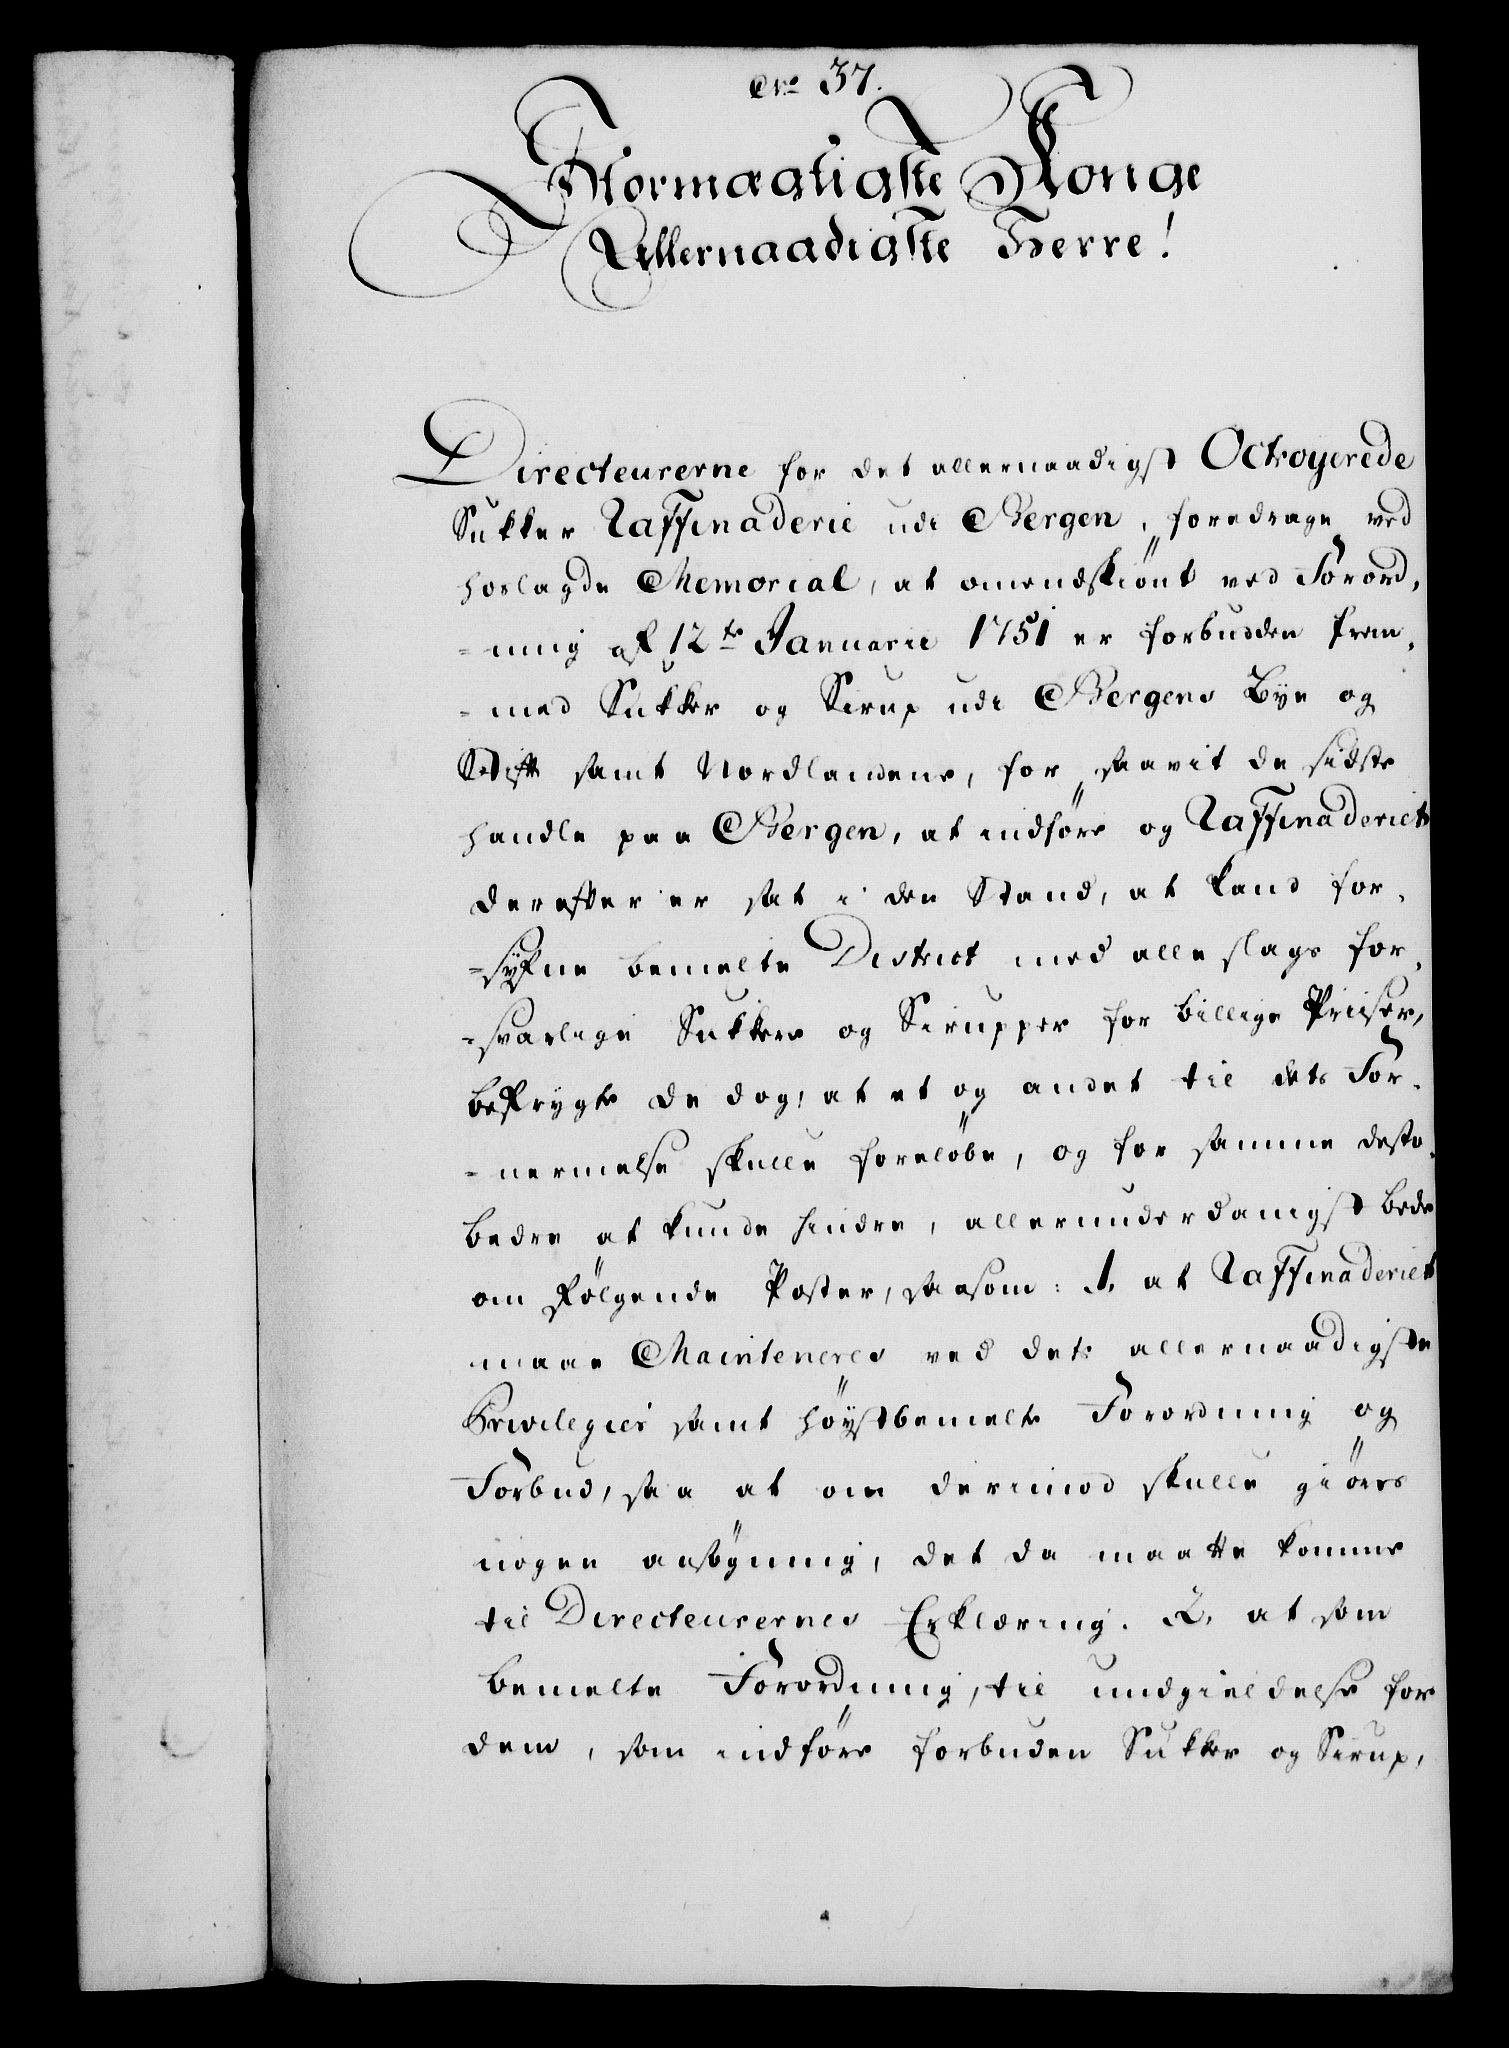 No 37.
Stormægtigste Konge
Allernaadigste Herre!
Directeurerne for det allernaadigst Octroyerede
Sukker Raffinaderie udi Bergen, foredrage ved
hoslagde Memorial, at omendskiönt ved Forord,
-ning af 12te Januarii 1751 er forbudden frem,
-med Sukker og Sirup udi Bergens Bye og
Stift samt Nordlandene, for saavit de sidste
handle paa Bergen, at indföre og Raffinaderiet
derefter er sat i den Stand, at kand for,
-syfne bemelte District med alle slags for,
-svarlige Sukkere og Sirupper for billige Priiser,
befrygte de dog, at et og andet til dets For,
-nermelse skulle foreløbe, og for samme desto,
bedre at kunde hindre, allerunderdanigst bede
om følgende Poster, saasom: 1, at Raffinaderiet
maae Mainteneres ved dets allernaadigste
Privilegier samt höystbemelte Forordning og
Forbud, saa at om derimod skulle giöres
nogen ansögning, det da maatte komme
til Directeurernes Erklæring. 2, at som
bemelte Forordning, til undgieldelse for
dem, som indföre forbuden Sukker og Sirup,